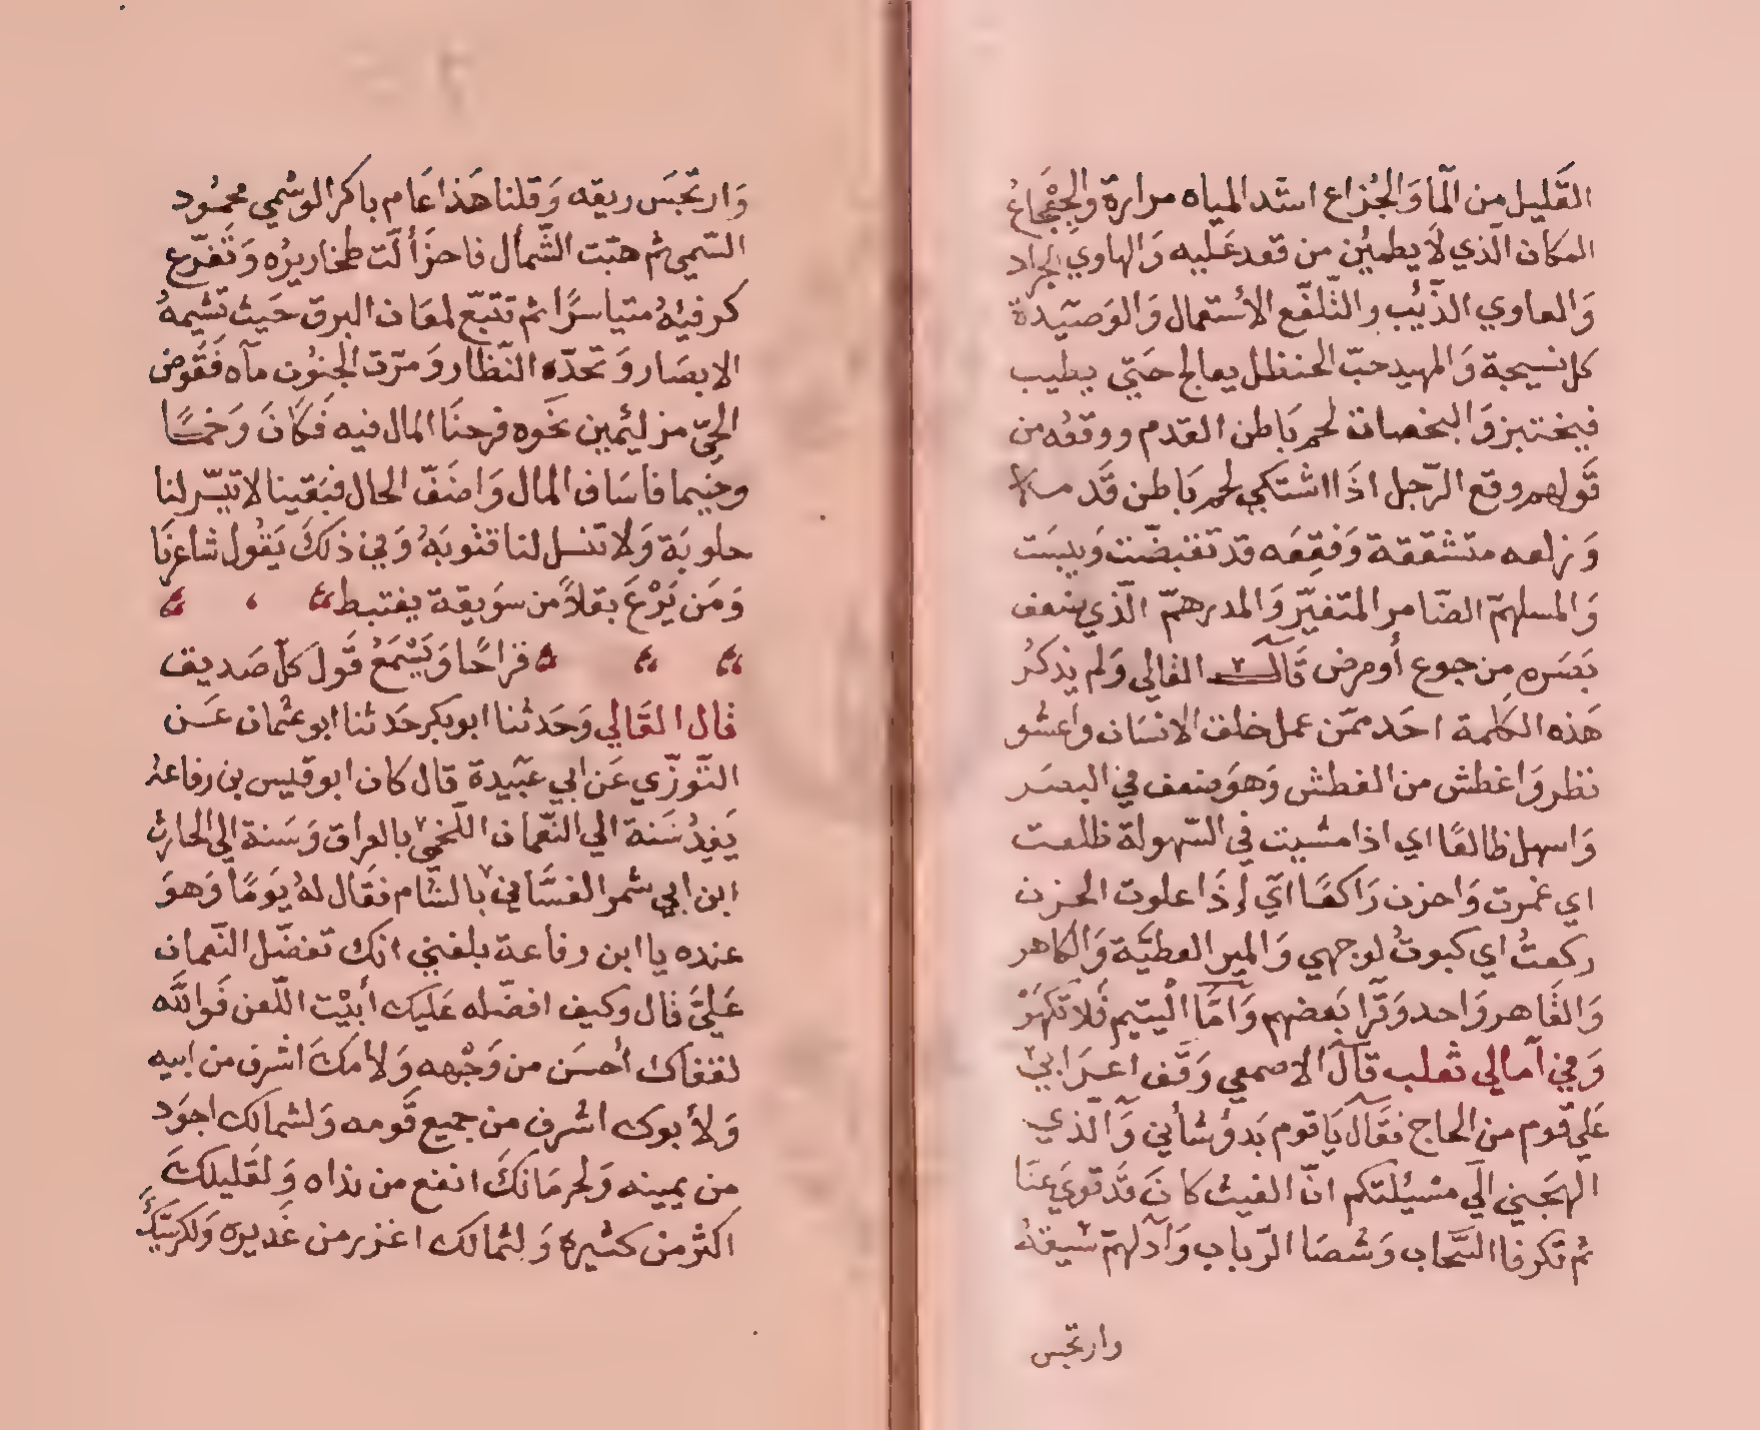 القَليل من المآ وَالجُزاع اشَد المياه مرارة والجَعْجاعُ
المكان الّذي لَا يطمئِن من قعد عَليه وَالهاوي الجراد
وَالعاوي الذّئِب والتّلفّع الاشتمال وَالوَصَيدة
كل نسيجة وَالمهيد حبّ الحنظل يعالج حَتي يطيب
فيختبز وَالبخصات لحم بَاطن القدم ووقعُه من
قَولهم وقع الرّجل اذَا اشتكي لحم بَاطن قَدمه
وَزلعه متشققة وَفَقِعَه قد تقبضّت وَيبسَت
وَالمسلهمّ الضّامر المتغيّر وَالمدرهمّ الّذي ضعف
بَصَره من جوع أو مرض قَالَ القالي وَلم يذكرُ
هَذه الكلمة احَد ممّن عمل خلق الانسَان واعشو
نظر وَاغطش من الغطش وَهوَ ضعف في البصَر
وَاسهل ظالعًا اي اذا مشيت في السّهولة ظلعت
اي غمزت وَاحزن رَاكعًا ايّ إذَا علوت الحزن
ركعتُ اي كبوتُ لوجهي وَالمير العطيّة وَالكاهر
وَالقَاهر وَاحد وَقَرا بَعضهم وَأمّا الْيتيم فَلا تكهَرْ
وَفي آمالي ثعلب قالَ الاصمعي وَقَف اعرَابيّ
عَلي قَوم من الحاج فقَالَ يَا قوم بَدؤ شأني وَالّذي
الهجَني الَي مسْيُلتكم انّ الغيث كانَ قَد قوي عَنَا
ثم تكرفا السَّحاب وَشصَا الرّباب وَآدلهمّ سَيقهُ
وارتجس
وَارتجَسَ ريقه وَقلنا هَذا عَام باكر الوسْمي محمُود
السّمي ثم هبّت الشّمأل فاحزَألّت طخاريرُه وَتَفزّع
كرفيُهُ متياسرًا ثم تتبّع لمعَان البرق حَيث تشيمهُ
الابصَار وَتحدّه النّظار وَمرَت الجنوُب مآه فَقَوض
الحيّ مزلئمين نحَوه فرحنَا المال فيه فَكَانَ وَخمًا
وخيما فاسَاف المال وَاضفّ الحال فبَقينا لا تيسّر لنا
حلوبَة وَلا تنسل لنا قتوبَةُ وَفي ذلكَ يَقُول شاعرنَا
وَمَن يَرْعَ بقلاً من سوَيقة يغتبط
قراحًا وَيَسْمَعُ قَولَ كلّ صَديق
قال القَالي وَحَدثنا ابو بكر حَدثنا ابو عثمان عَن
التّوزّي عَن ابي عبَيدة قال كان ابو قيس بن رفاعة
يَفدُ سَنة الي النّعمان اللّخميّ بالعراق وَسَنة الي الحارث
ابن ابي شمر الغسَّاني بالشّام فقَال لهُ يَومًا وَهوَ
عنده يا ابن رفاعة بلغني انك تفضّل النّعمان
عَليَّ قال وكيف افضّله عَليك أبيْت اللّعن فَوالله
لقفاك أحسَن من وَجْهه وَلامكَ اشرف من ابيه
وَلأبوك اشرف من جميع قَومه وَلشمالك اجوَد
من يمينه وَلحرمَانكَ انفع من نداه وَلقَليلكَ
اكثر من كثيره وَلثمالك اغزر من غَديره وَلكرسيّكَ